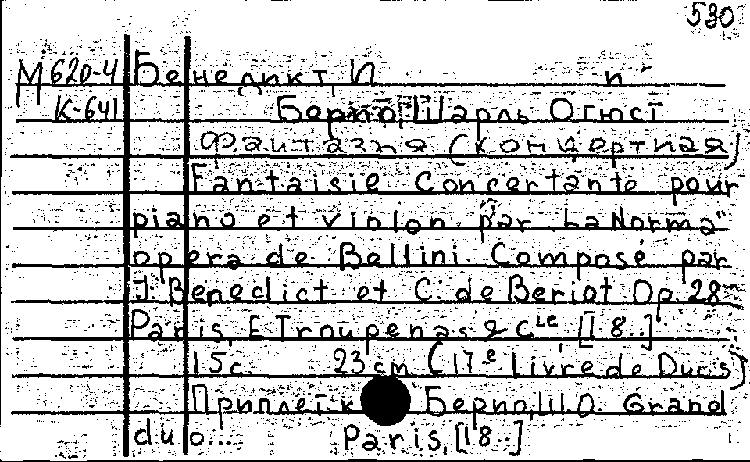 530
М 620-4 Бенедикт, И п
К-641 Берио, Шарль Огюст
Фантазия (концертная)
Fantaisie concertante pour
piano et violon par "La Norma"
opera de Bellini. Composé par
J. Benedict et C. de Beriot Op. 28
Paris, E Troupenas & Cie, [18..]
15 с. 23 cm (17e Livre de Duos)
Приплет к Берио, Ш.О. Grand
duo... Paris, [18..]